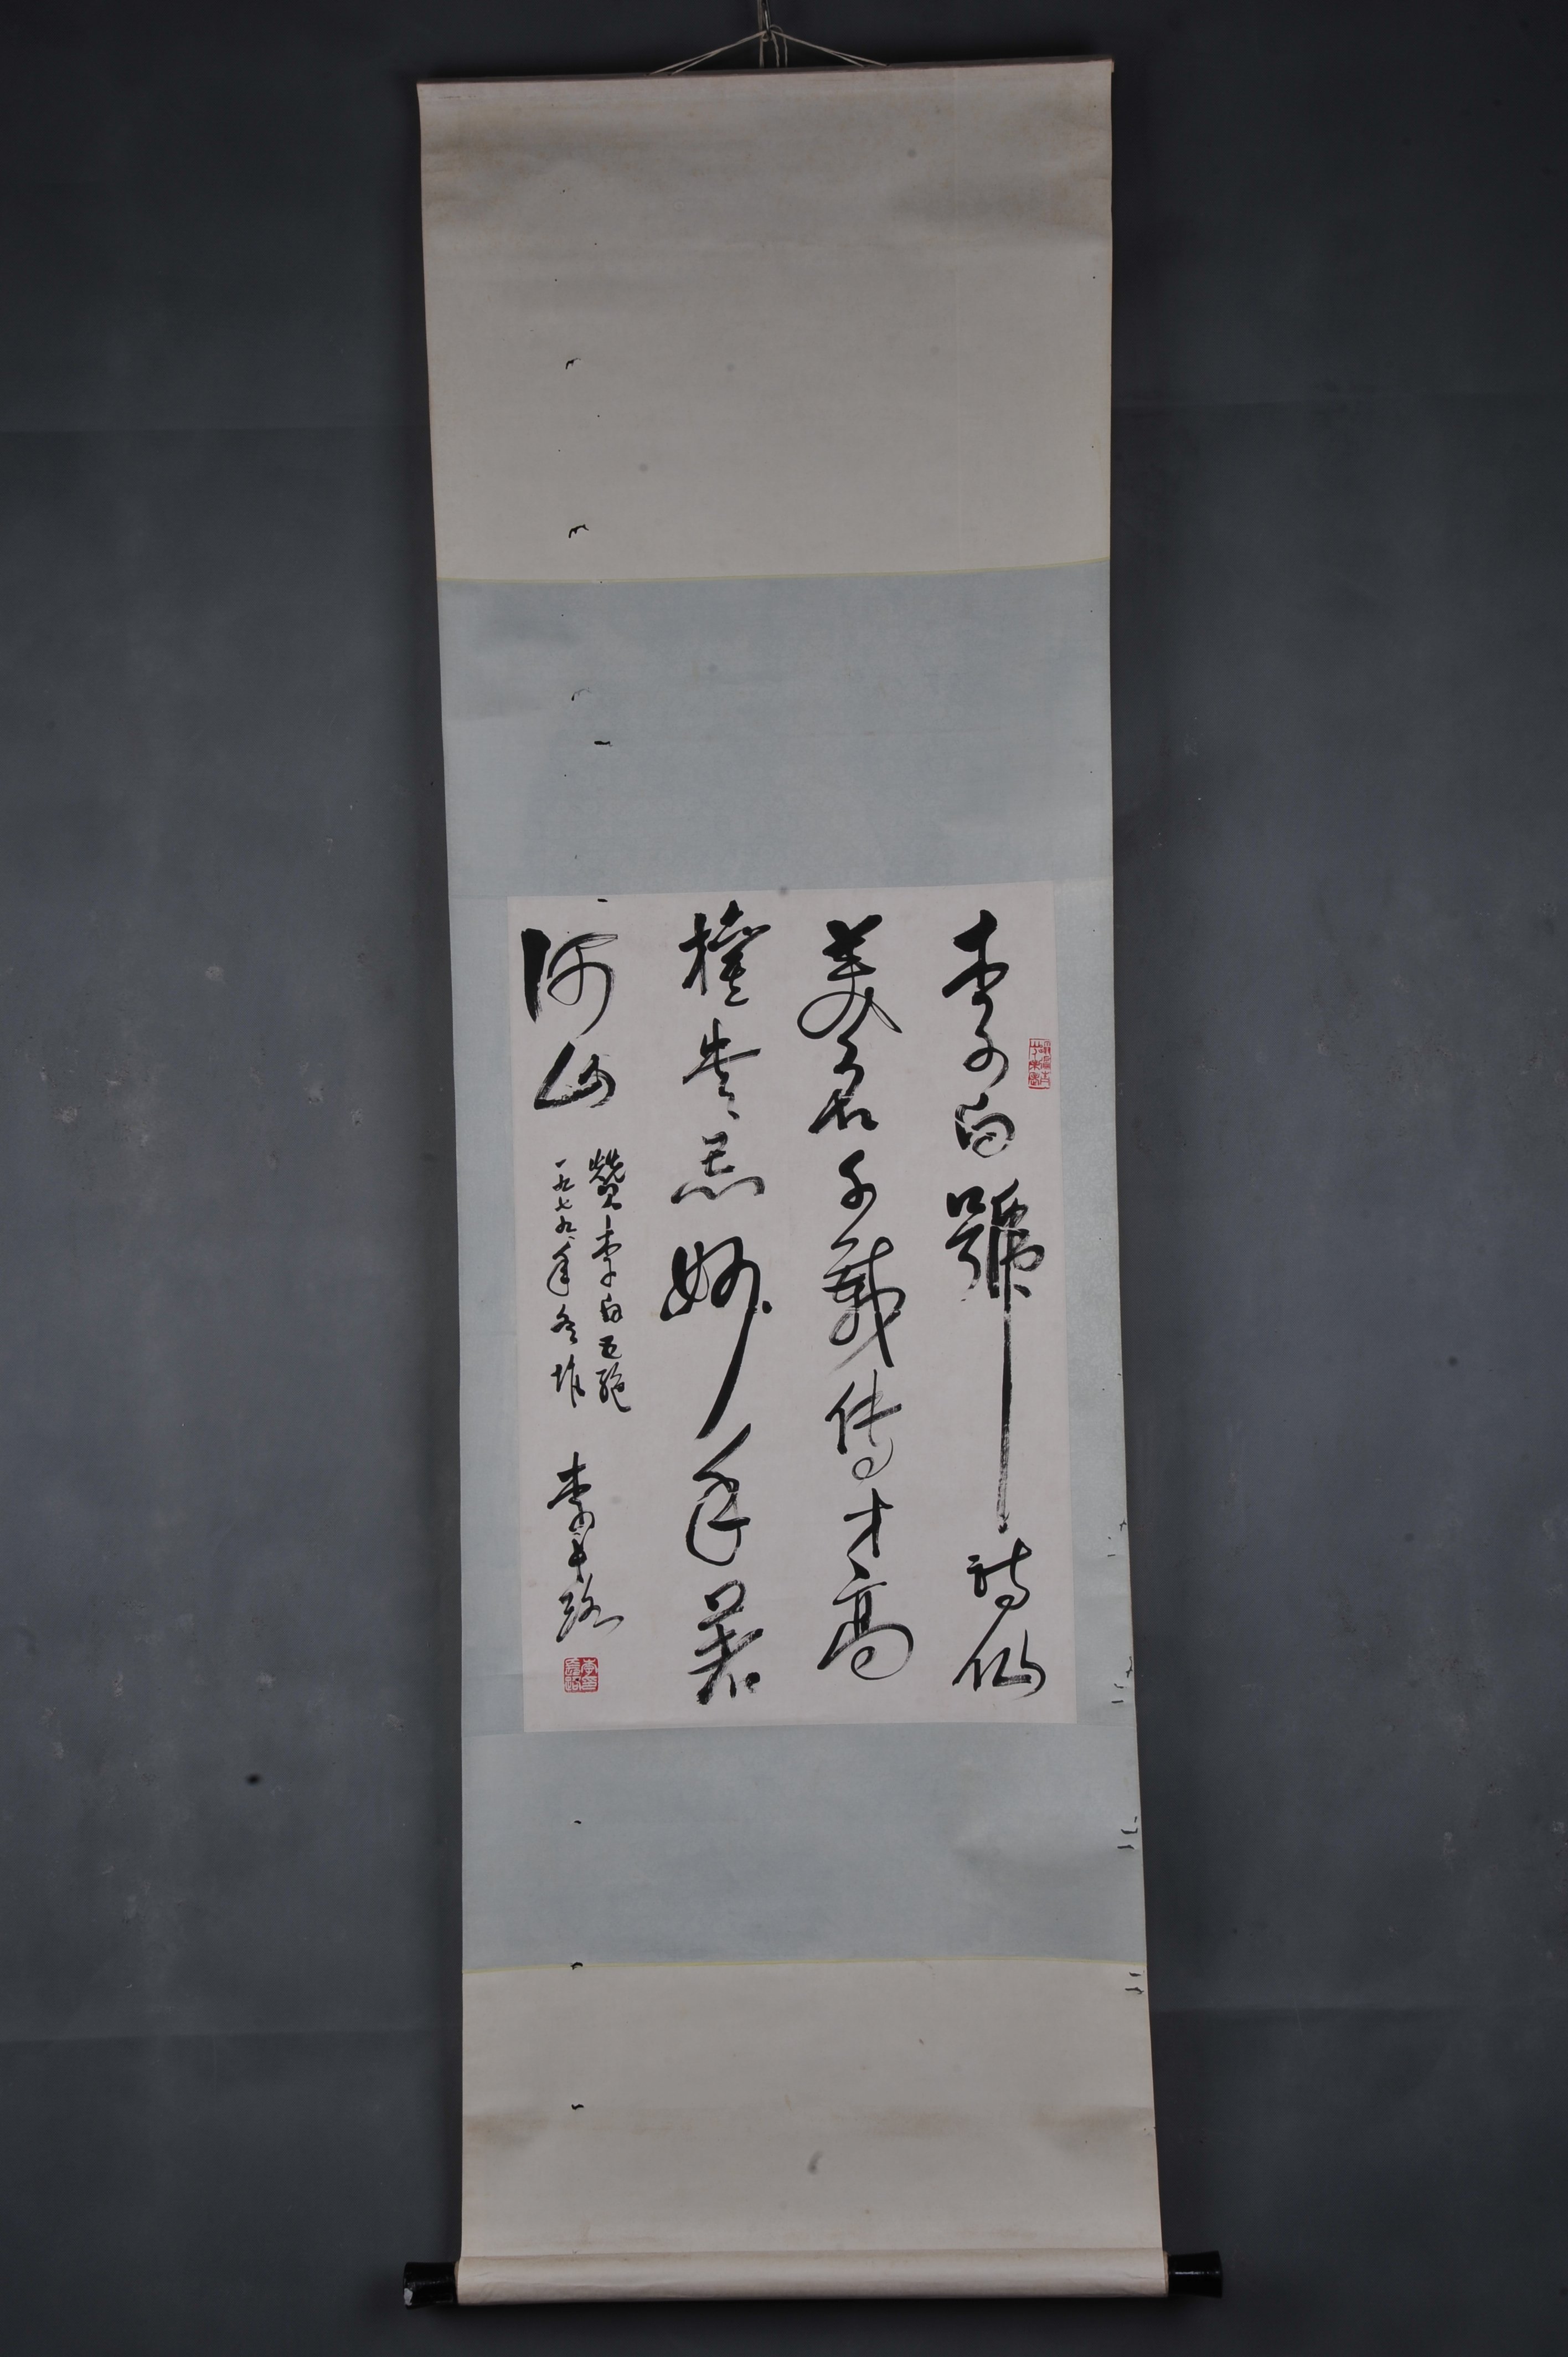 李白號詩仙
美名千載傳才高
權貴忌妙著
河山
贊李白五絕
一九七九年冬
李長路